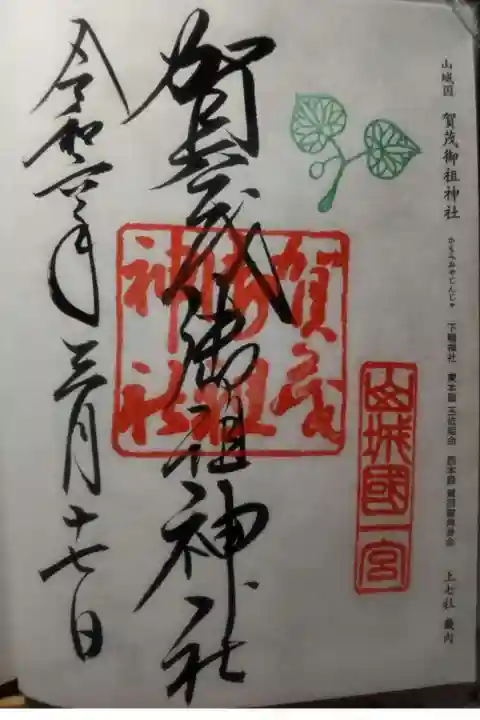 山城国 賀茂御祖神社 かもみおやじんじゃ 下鴨神社 上七社 畿内
賀茂御祖神社
賀茂
御祖
神社
山城國一宮
令和六年三月十七日